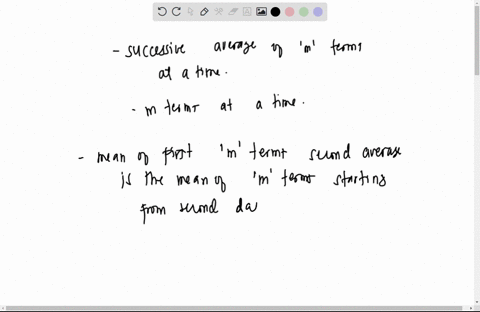 - successive average of 'm' terms
at a time.
- m terms at a time.
- mean of first 'm' terms second average
is the mean of 'm' terms starting
from second da